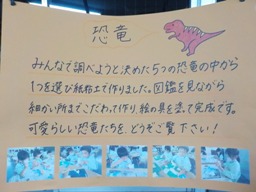 恐竜
みんなで調べようと決めた5つの恐竜の中から
1つを選び紙粘土で作りました。図鑑を見ながら
細かい所までこだわって作り、絵の具を塗って完成です。
可愛らしい恐竜たちを、どうぞご覧下さい!